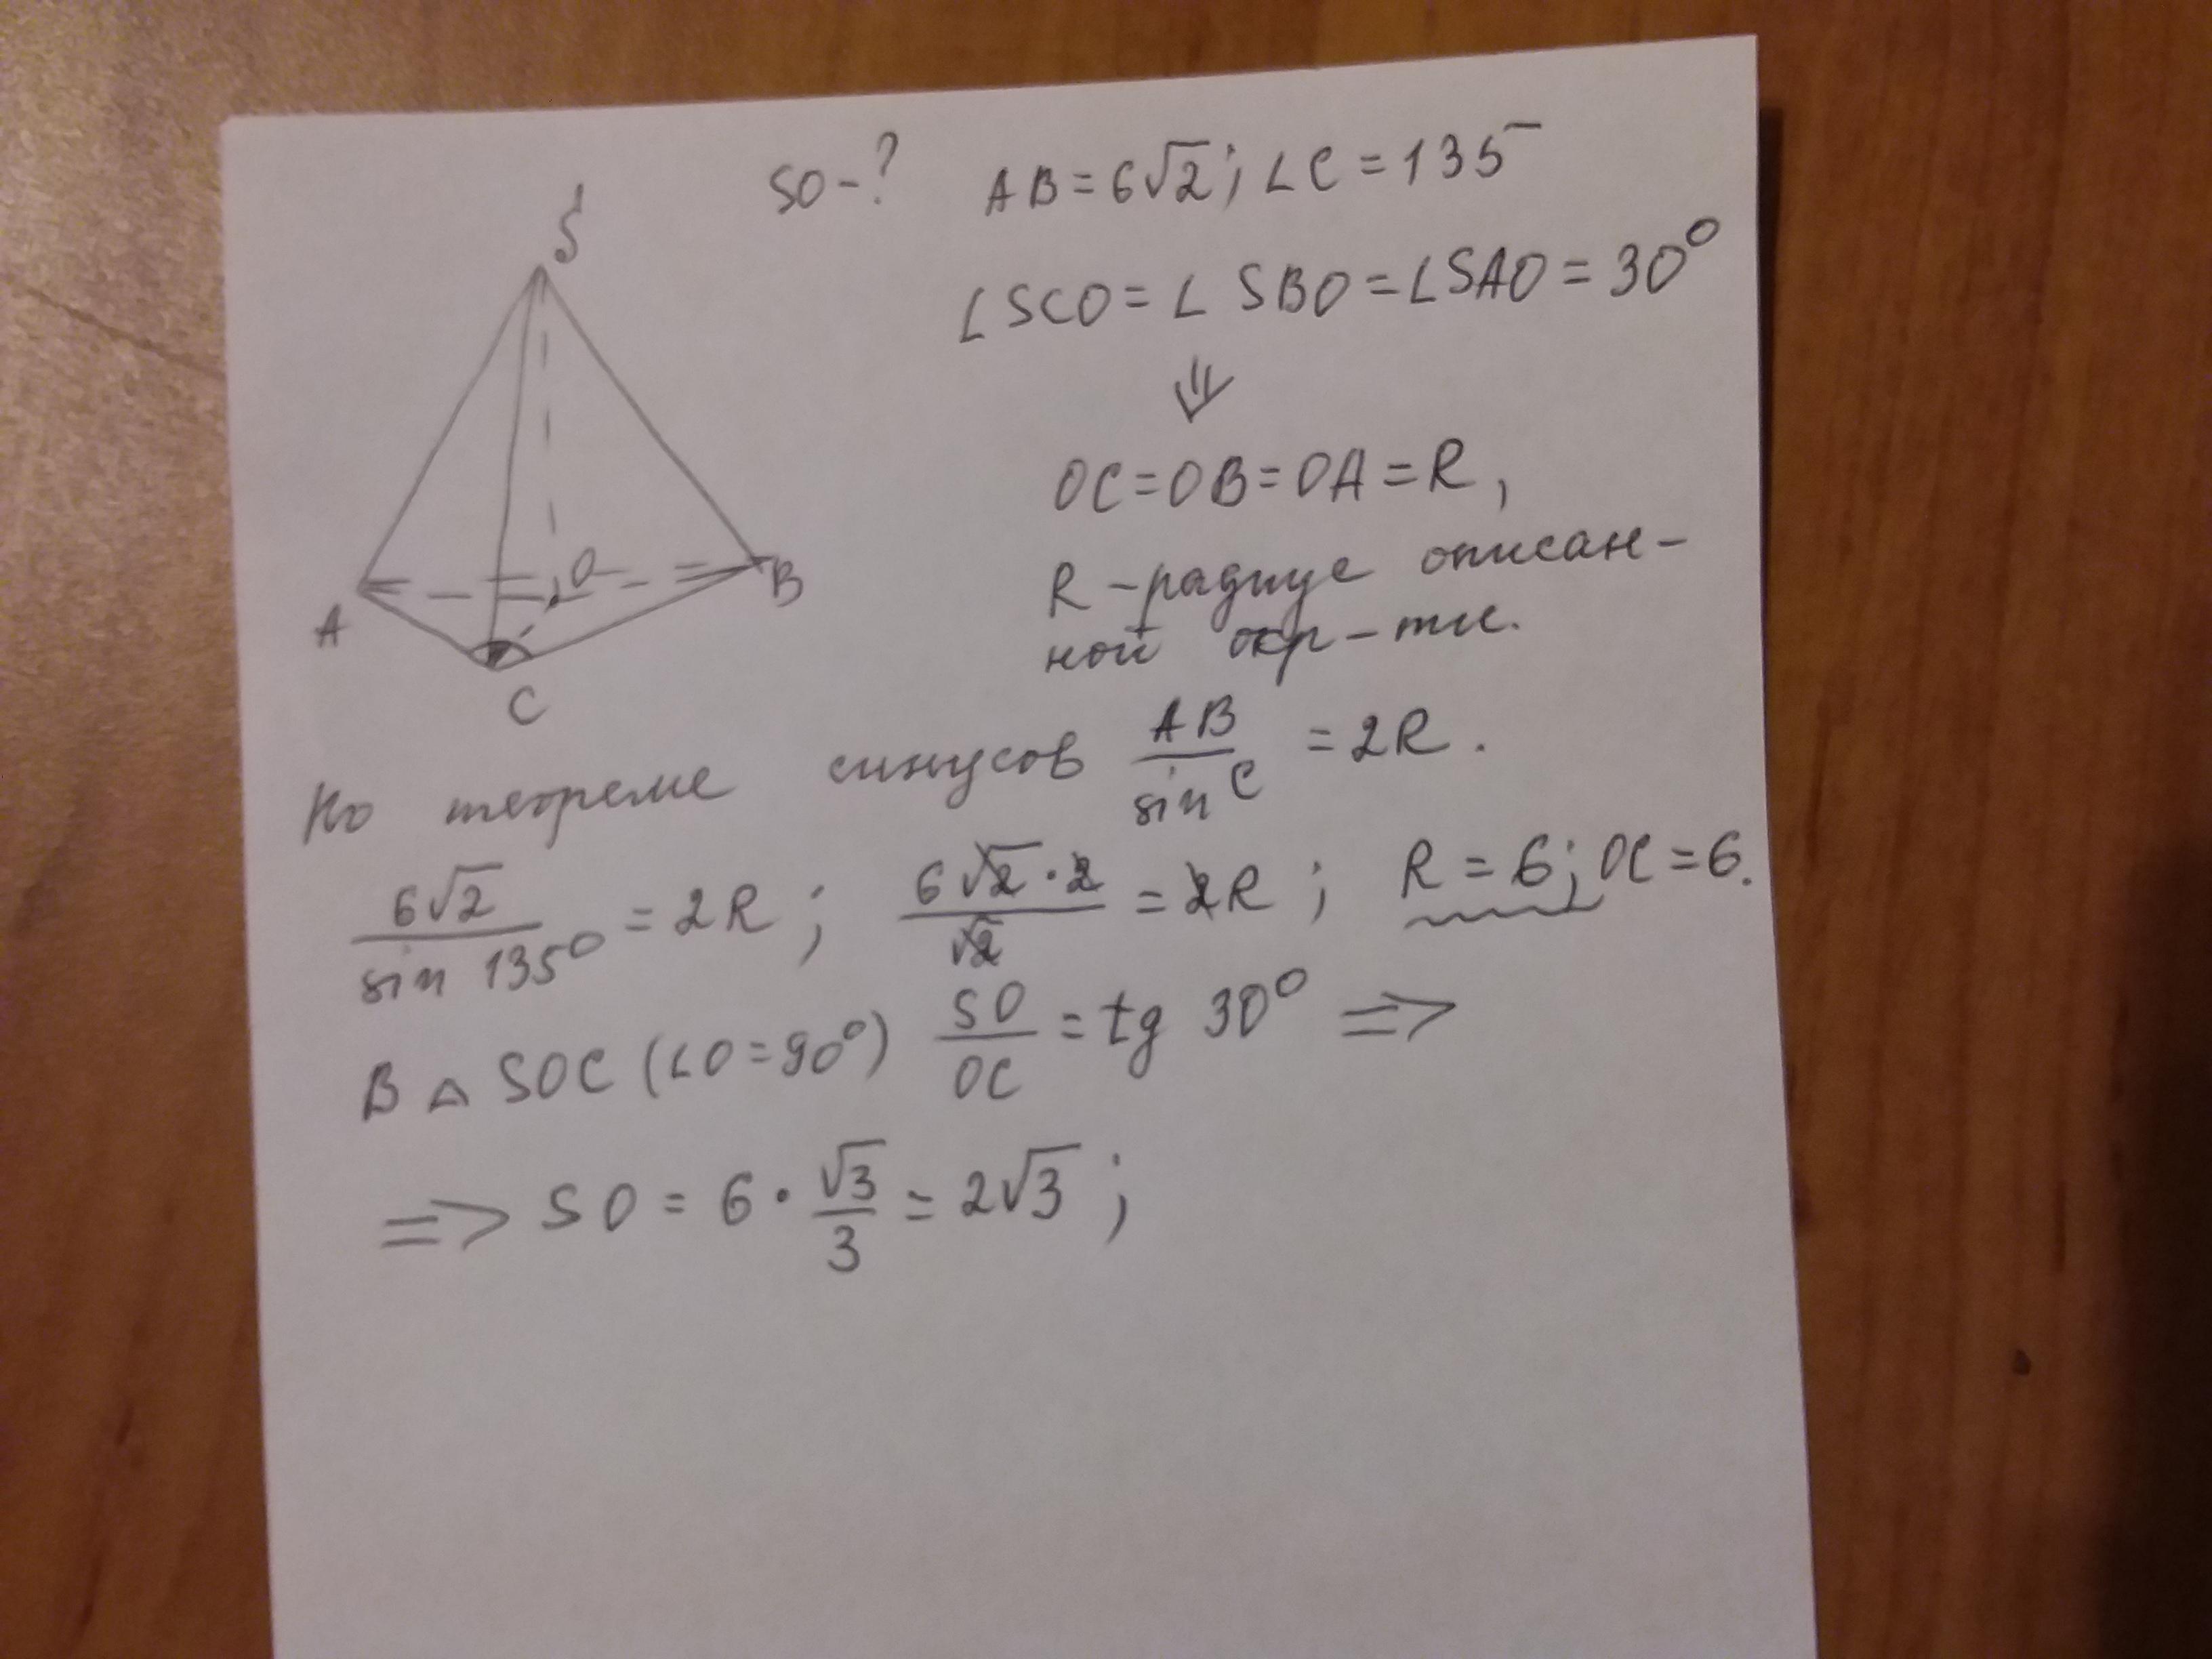 SO-? AB=6√2; ∠C=135
∠SCO=∠SBO=∠SAO=30°
⇓
OC=OB=OA=R,
R-радиус описан-
ной окр-ти.
S
O
A
B
C
По теореме синусов AB/sin C = 2R.
6√2/sin 135° = 2R; 6√2·2/√2 = 2R; R=6; OC=6.
В △ SOC (∠O=90°) SO/OC = tg 30° =>
=> SO = 6·√3/3 = 2√3;